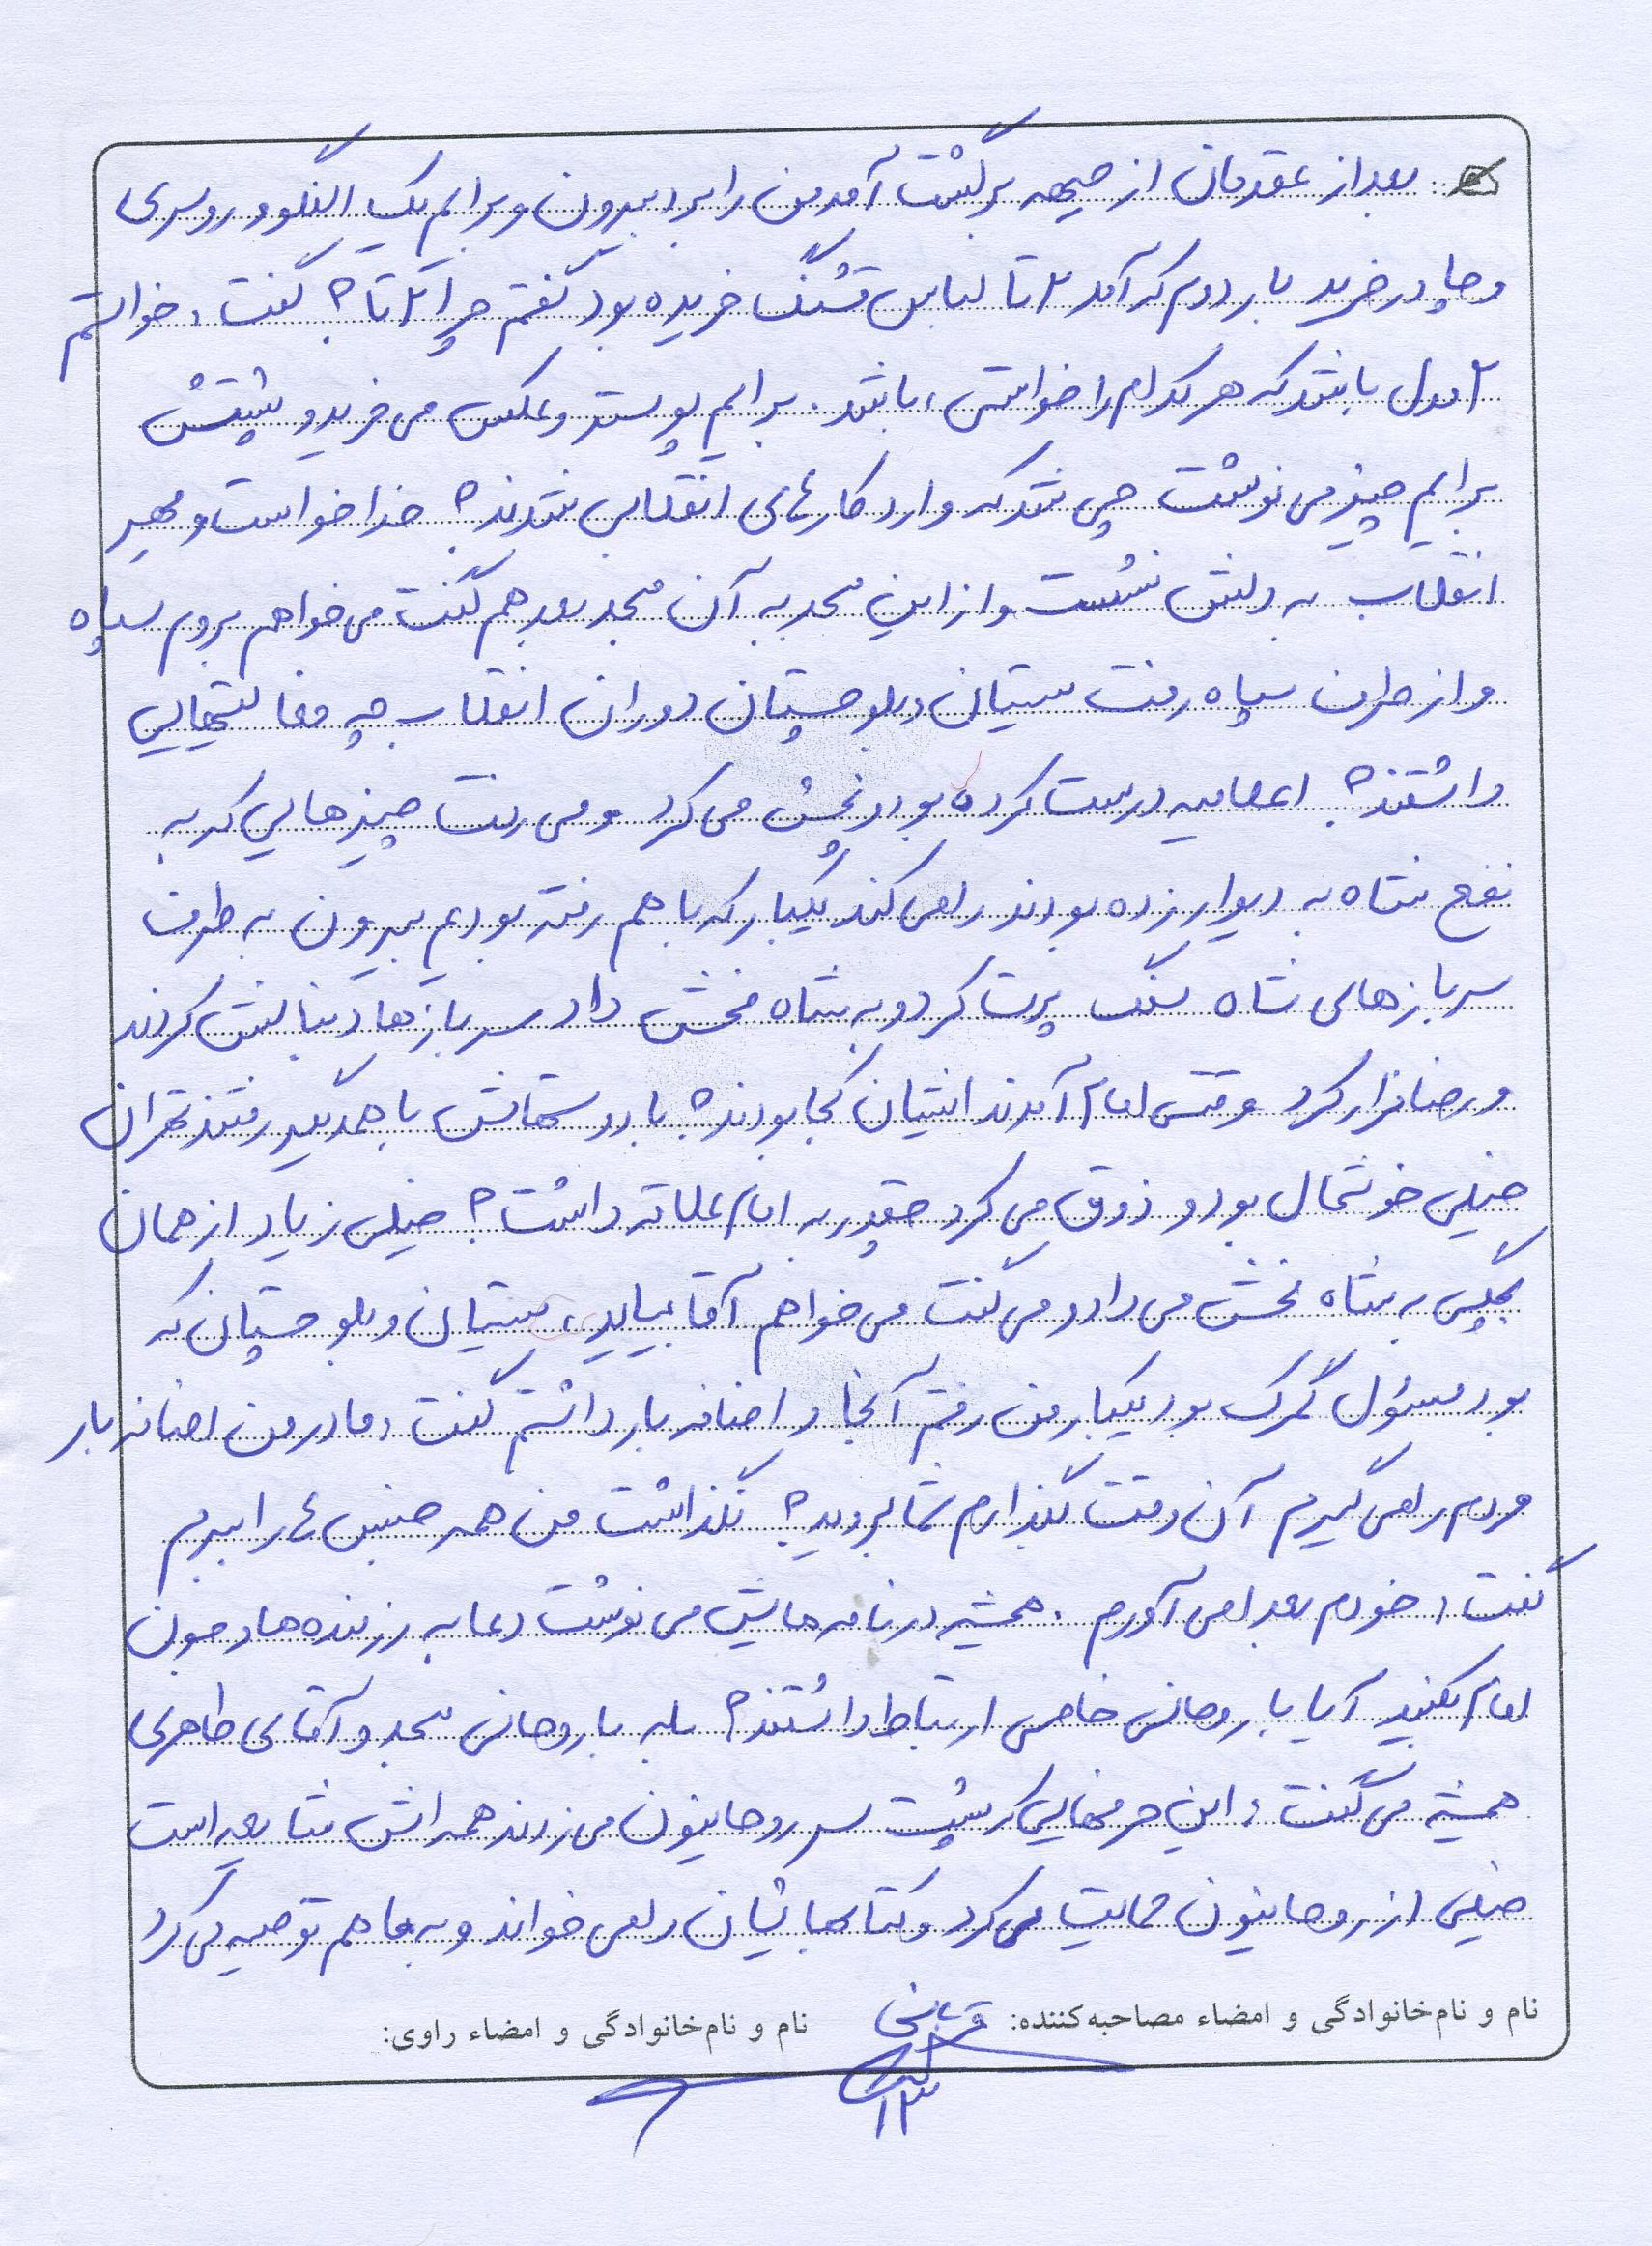 بعد از عقدمان از جبهه برگشت آمد من را برد بیرون و برایم یک النگو و روسری
و چادر خرید بار دوم که آمد ۲ تا لباس قشنگ خریده بود گفتم چرا ۲ تا؟ گفت: خواستم
۲ مدل باشد که هر کدام را خواستی، باشد. برایم پوستر و عکس می خرید و پشتش
برایم چیز می نوشت چی شد که وارد کارهای انقلابی شدند؟ خدا خواست و مهر
انقلاب به دلش نشست و از این مسجد به آن مسجد بعد هم گفت می خواهم بروم سپاه
و از طرف سپاه رفت سیستان و بلوچستان دوران انقلاب چه فعالیتهایی
داشتند؟ اعلامیه درست کرده بود و پخش می کرد و می رفت چیزهایی که به
نفع شاه به دیوار زده بودند را می کند یکبار که با هم رفته بودیم بیرون به طرف
سربازهای شاه سنگ پرت کرد و به شاه فحش داد سربازها دنبالش کردند
و رضا فرار کرد وقتی امام آمدند ایشان کجا بودند؟ با دوستانش با همدیگر رفتند تهران
خیلی خوشحال بود و ذوق می کرد چقدر به امام علاقه داشت؟ خیلی زیاد از همان
بچگی به شاه فحش می داد و می گفت می خواهم آقا بیاید، سیستان و بلوچستان که
بود مسئول گمرک بود یکبار من رفتم آنجا و اضافه بار داشتم گفت: مادر من اضافه بار
مردم را می گیرم آن وقت بگذارم شما ببرید؟ نگذاشت من همه جنس ها را ببرم
گفت: خودم بعدا می آورم. همیشه در نامه هایش می نوشت دعا به رزمنده ها و جون
امام بکنید آیا با روحانی خاصی ارتباط داشتند؟ بله با روحانی مسجد و آقای طاهری
همیشه می گفت: این حرفهایی که پشت سر روحانیون می زنند همه اش شایعه است
خیلی از روحانیون حمایت می کرد و کتابهایشان را می خواند و به ما هم توصیه می کرد
نام و نام‌خانوادگی و امضاء مصاحبه‌کننده: قربانی نام و نام‌خانوادگی و امضاء راوی: